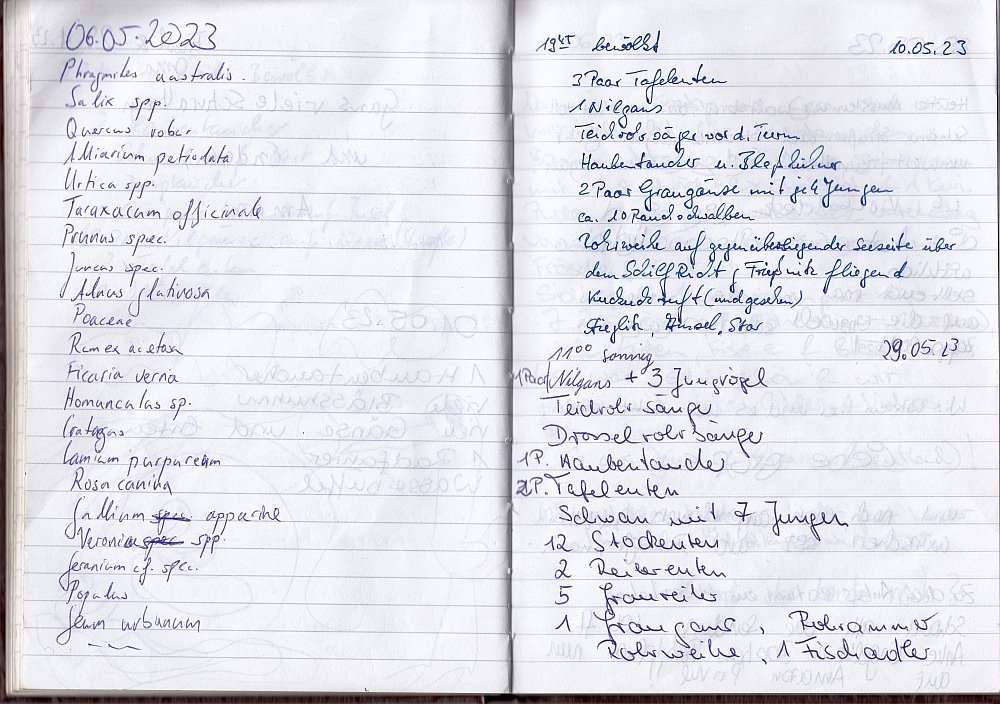 06.05.2023
Phragmites australis.
Salix spp.
Quercus robur
Alliarium petiolata
Urtica spp.
Taraxacum officinale
Prunus spec.
Juncus spec.
Alnus glutinosa
Poaceae
Rumex acetosa
Ficaria verna
Homunculus sp.
Crataegus
Lamium purpureum
Rosa canina
Gallium spec. apparine
Veronica spec spp.
Geranium cf. spec.
Populus
Geum urbanum
19 bewölkt 10.05.23
3 Paar Tafelenten
1 Nilgans
Teichrohrsänger vor d. Turm
Haubentaucher u. Bleßhühner
2 Paar Graugänse mit je 4 Jungen
ca. 10 Rauchschwalben
Rohrweihe auf gegenüberliegender Seeseite über
dem Schilf Richtg Triepnitz fliegend
Kuckuck ruft (und gesehen)
Stieglitz, Amsel, Star
11⁰⁰ sonnig 29.05.23
1 Paar Nilgans + 3 Jungvögel
Teichrohrsänger
Drosselrohrsänger
1P. Haubentaucher
2P. Tafelenten
Schwan mit 7 Jungen
12 Stockenten
2 Reiherenten
5 Graureiher
1 Graugans, Rohrammer
Rohrweihe, 1 Fischadler